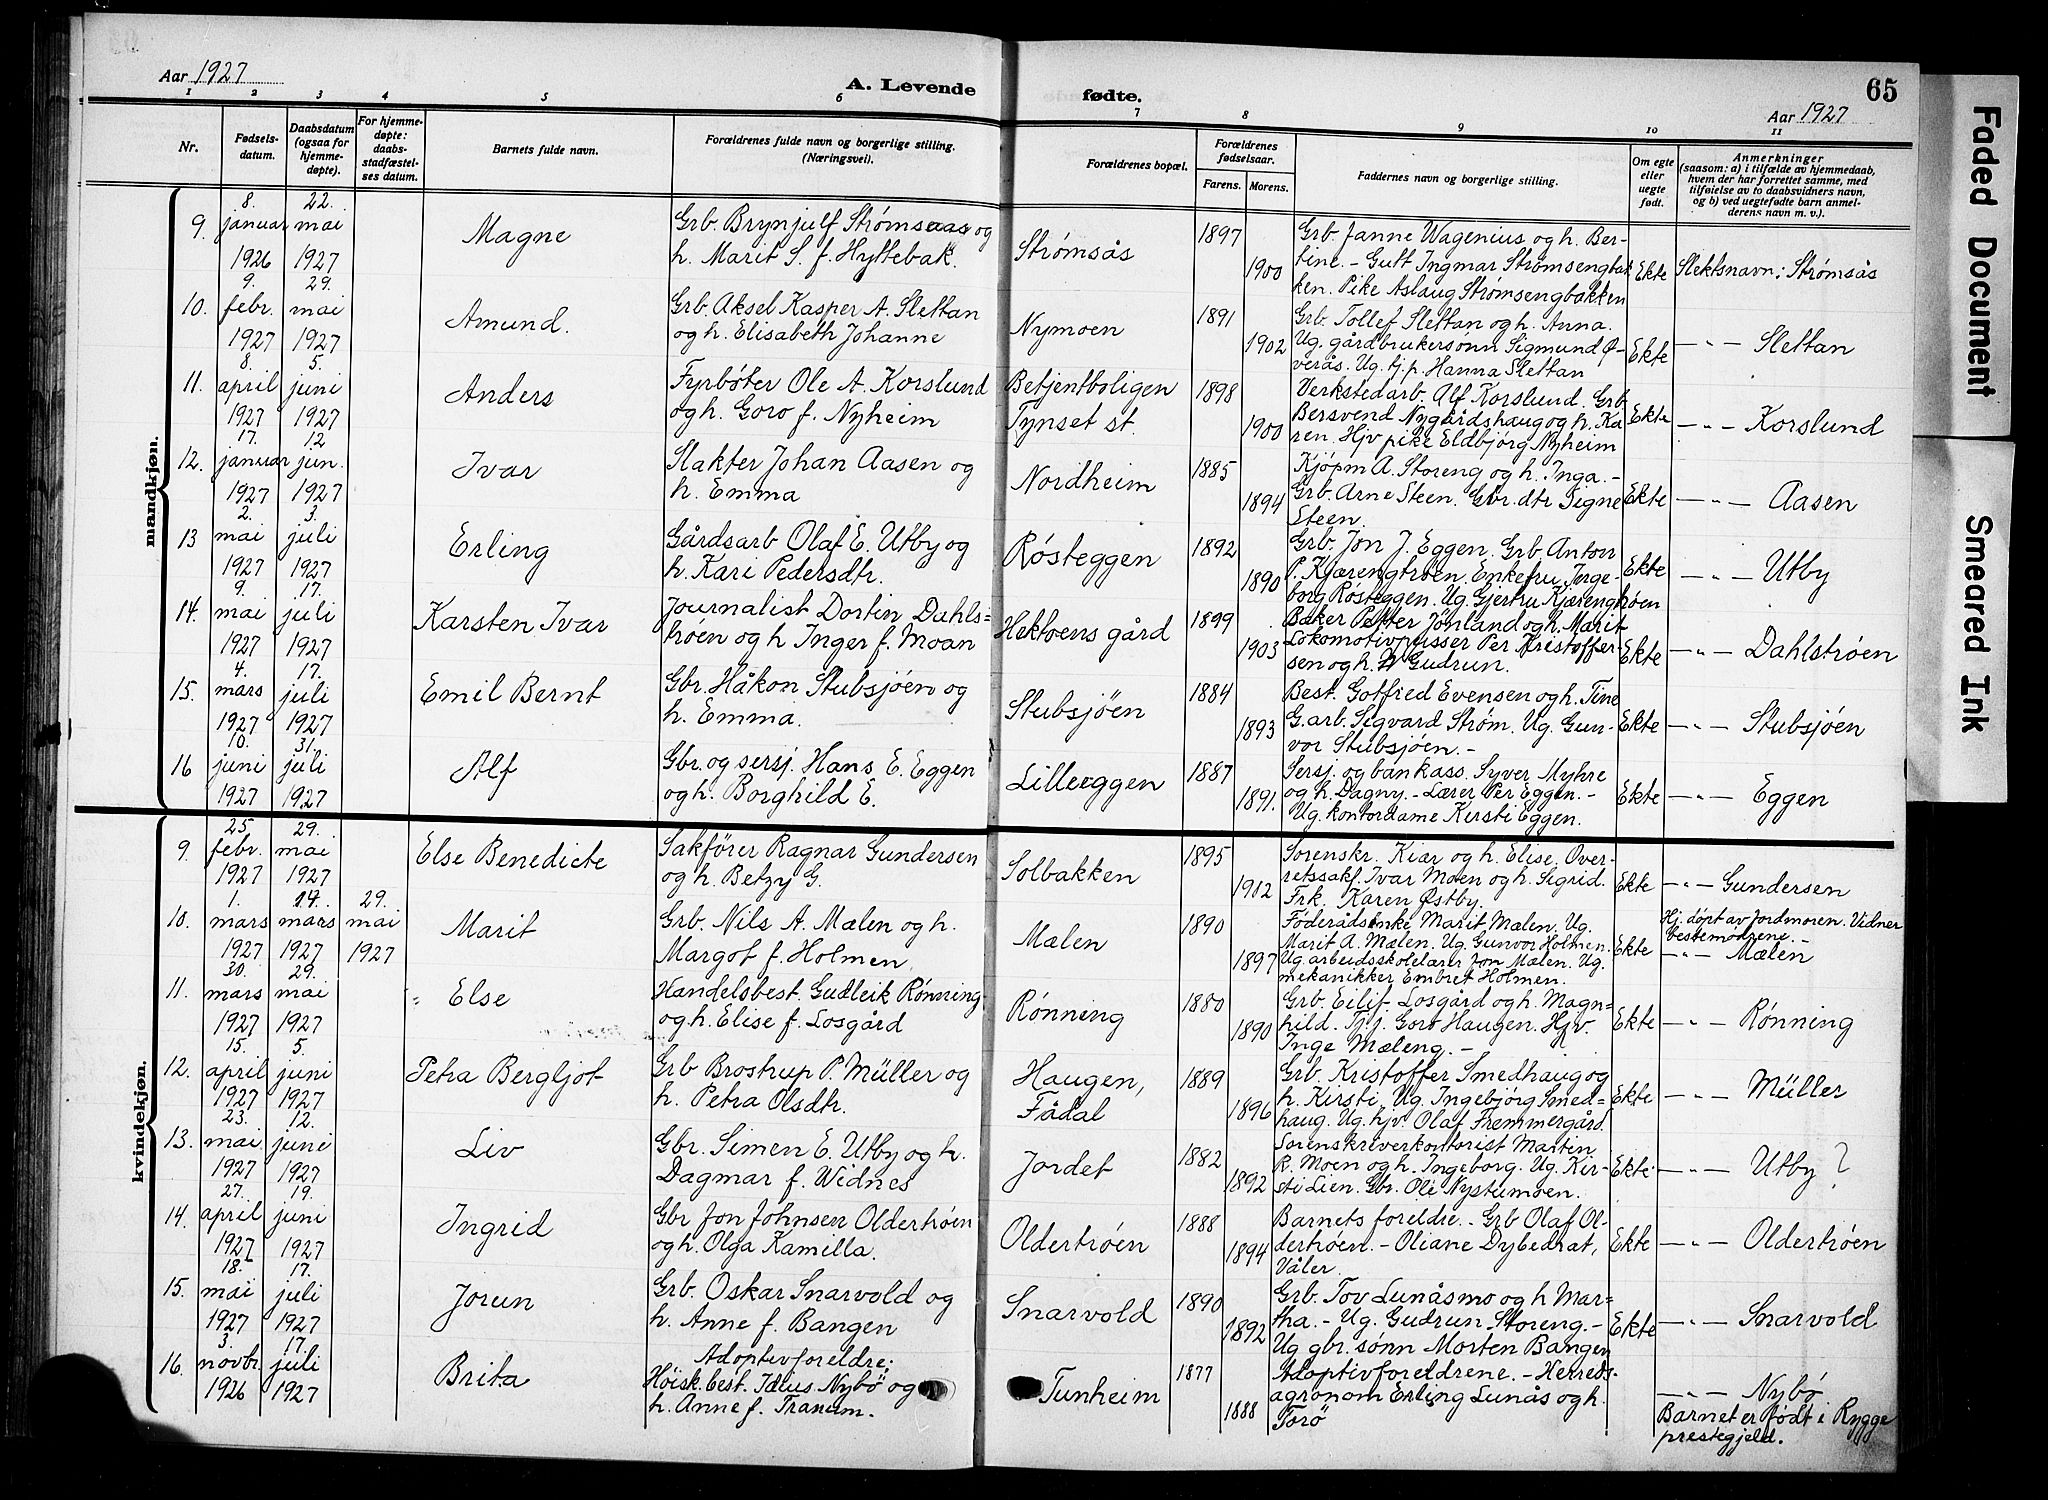 Aar 1927
A. Levende fødte.
65
Aar 1927
1 2 3 4 5 6 7 8 9 10 11
Nr.
Fødsels-
datum.
Daabsdatum
(ogsaa for
hjemme-
døpte).
For hjemme-
døpte:
daabs-
stadfæstel-
ses datum.
Barnets fulde navn.
Forældrenes fulde navn og borgerlige stilling.
(Næringsvei).
Forældrenes bopæl.
Forældrenes
fødselsaar.
Farens. Morens.
Faddernes navn og borgerlige stilling.
Om egte
eller
uegte
født.
Anmerkninger
(saasom: a) i tilfælde av hjemmedaab,
hvem der har forrettet samme, med
tilføielse av to daabsvidners navn,
og b) ved uegtefødte barn anmel-
derens navn m. v.).
mandkjøn.
9.
8.
januar
1926
22.
mai
1927
Magne
Grb. Brynjulf Strømsaas og
h. Marit S. f. Hyttebak.
Strømsås
1897
1900
Grb. Janne Wagenius og h. Ber-
tine. - Gutt Ingmar Strømsengbak
ken. Pike Aslaug Strømsengbakken
Ekte
Slektsnavn: Strømsås
10.
9.
febr.
1927
29.
mai
1927
Amund.
Grb. Aksel Kasper A. Slettan
og h. Elisabeth Johanne
Nymoen
1891
1902
Grb. Tollef Slettan og h. Anna.
Ug. gårdbrukersønn Sigmund Ø-
verås. Ug. tj. p. Hanna Slettan
Ekte
— " — Slettan
11.
8.
april
1927
5.
juni
1927
Anders
Fyrbøter Ole A. Korslund
og h. Goro f. Nyheim
Betjentboligen
Tynset st.
1898
1900
Verkstedarb. Alf Korslund. Grb
Bersvend Nygårdshaug og h. Ka
ren. Hjv pike Eldbjørg Nyheim
Ekte
— " — Korslund
12.
17.
januar
1927
12
jun.
1927
Ivar
Slakter Johan Aasen og
h. Emma
Nordheim
1885
1894
Kjøpm A. Storeng og h. Inga. -
Grb. Arne Steen. Gbr. dtr Signe
Steen.
Ekte
— " — Aasen
13
2.
mai
1927
3.
juli
1927
Erling
Gårdsarb Olaf E. Utby og
h. Kari Pedersdtr.
Røsteggen
1892
1890
Grb. Jon J. Eggen. Grb Anton
P. Kjærengtrøen. Enkefru Inge-
borg Røsteggen. Ug. Gjertru Kjærengtrøen
Ekte
— " — Utby
14.
9.
mai
1927
17.
juli
1927
Karsten Ivar
Journalist Dortin Dahls=
trøen og h Inger f. Moan
Hektoens gård
1899
1903
Baker Petter Tönland og h. Marit
Lokomotivpusser Per Kristoffer-
sen og h. Gudrun.
Ekte
— " — Dahlstrøen
15.
4.
mars
1927
17.
juli
1927
Emil Bernt
Gbr. Håkon Stubsjøen og
h. Emma.
Stubsjöen
1884
1893
Best. Gotfred Evensen og h. Tine
G.arb. Sigvard Strøm. Ug. Gun-
vor Stubsjöen. -
Ekte
— " — Stubsjöen
16
10.
juni
1927
31.
juli
1927
Alf
Gbr. og sersj. Hans E. Eggen
og h. Borghild E.
Lilleeggen
1887
1891.
Sersj. og bankass. Syver Myhre
og h. Dagny. - Lærer Per Eggen. -
Ug. kontordame Kirsti Eggen.
Ekte
— " — Eggen
kvindekjøn.
9.
25.
febr.
1927
29.
mai
1927
Else Benedicte
Sakfører Ragnar Gundersen
og h. Betzy G.
Solbakken
1895
1902
Sorenskr. Kiar og h. Elise. Over-
rettssakf. Ivar Moen og h. Sigrid.
Frk. Karen Østby.
Ekte
— " — Gundersen
10.
1.
mars
1927
mars
1927
29.
mai
1927
Marit
Grb. Nils A. Mælen og h.
Margot f. Holmen.
Mælen
1890
1897
Föderådsenke Marit Mælen. Ug.
Marit A. Mælen. Ug. Gunvor Holmen.
Ug. arbeidsskolelærer Jon Mælen. Ug.
mekanikker Embret Holmen.
Ekte
Hj. döpt av jordmoren. Vidner
bestemödrene. -
— " — Mælen
11.
30.
mars
1927
29.
mai
1927
Else
Handelsbest. Gudleik Rønning
og h. Elise f. Losgård
Rønning
1880
1890
Grb. Eilif Losgård og h. Magn=
hild. Tj. j. Goro Haugen. Hjv.
Inge Mæleng. -
Ekte
— " — Rønning
12.
15.
april
1927
5.
juni
1927
Petra Bergljot
Grb Brostrup P. Müller og
h. Petra Olsdtr.
Haugen,
Fådal
1889
1896
Grb. Kristoffer Smedhaug og
h. Kirsti, Ug. Ingebjørg Smed=
haug. Ug. hjv. Olaf Fremmergård.
Ekte
— " — Müller
13.
23.
mai
1927
12.
juni
1927
Liv
Gbr. Simen E. Utby og h.
Dagmar f. Widnes
Jordet
1882
1892
Sorenskriverkontorist Martin
R. Moen og h. Ingeborg. Ug. Kir-
sti Lien. Gbr. Ole Nystumoen.
Ekte
— " — Utby ?
14.
27.
april
1927
19.
juni
1927
Ingrid
Gbr Jon Johnsen Oldertrøen
og h. Olga Kamilla.
Oldertrøen
1888
1894
Barnets foreldre. - Grb Olaf Ol-
dertrøen. - Oliane Dybedrat,
Våler.
Ekte
— " — Oldertrøen
15.
18.
mai
1927
17.
juli
1927
Jorun
Grb. Oskar Snarvold og
h. Anne f. Bangen
Snarvold
1890
1892
Grb. Tov Lunåsmo og h Mar=
tha. - Ug. Gudrun Storeng. -
Ug gbr. sønn Morten Bangen
Ekte
— " — Snarvold
16.
3.
novbr.
1926
17.
juli
1927
Brita
Adoptivforeldre:
Höisk. best. Idæus Nybö og
h. Anne f. Tranum.
Tunheim
1877
1888
Adoptivforeldrene. - Herreds-
agronom Erling Lunås og h.
Torö
— " — Nybö
Barnet er födt i Rygge
prestegjeld.
Faded Document
Smeared Ink